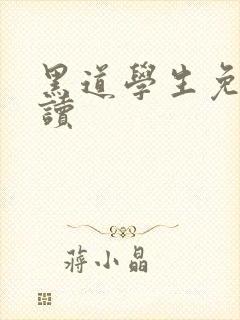 黑道學生免
讀
蔣小晶